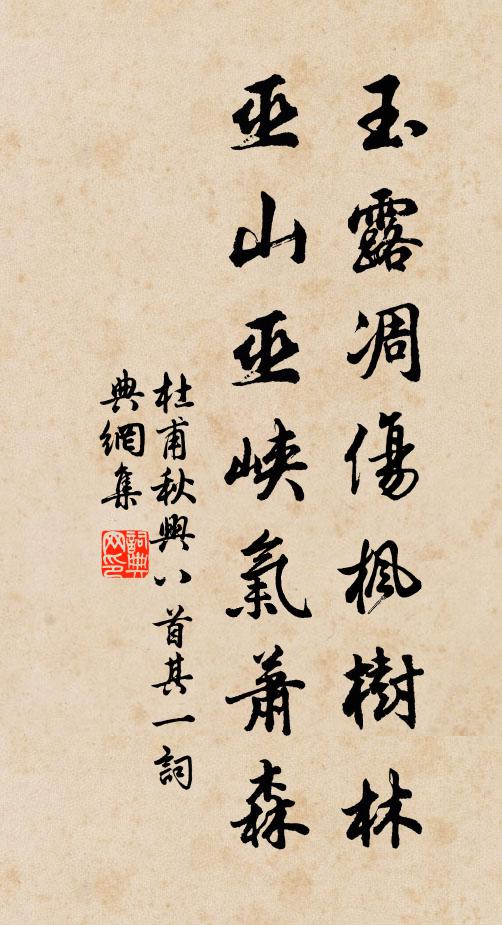 玉露凋傷楓樹林
巫山巫峽氣蕭森
杜甫秋興八首其一詞
典網集
詞典
网印